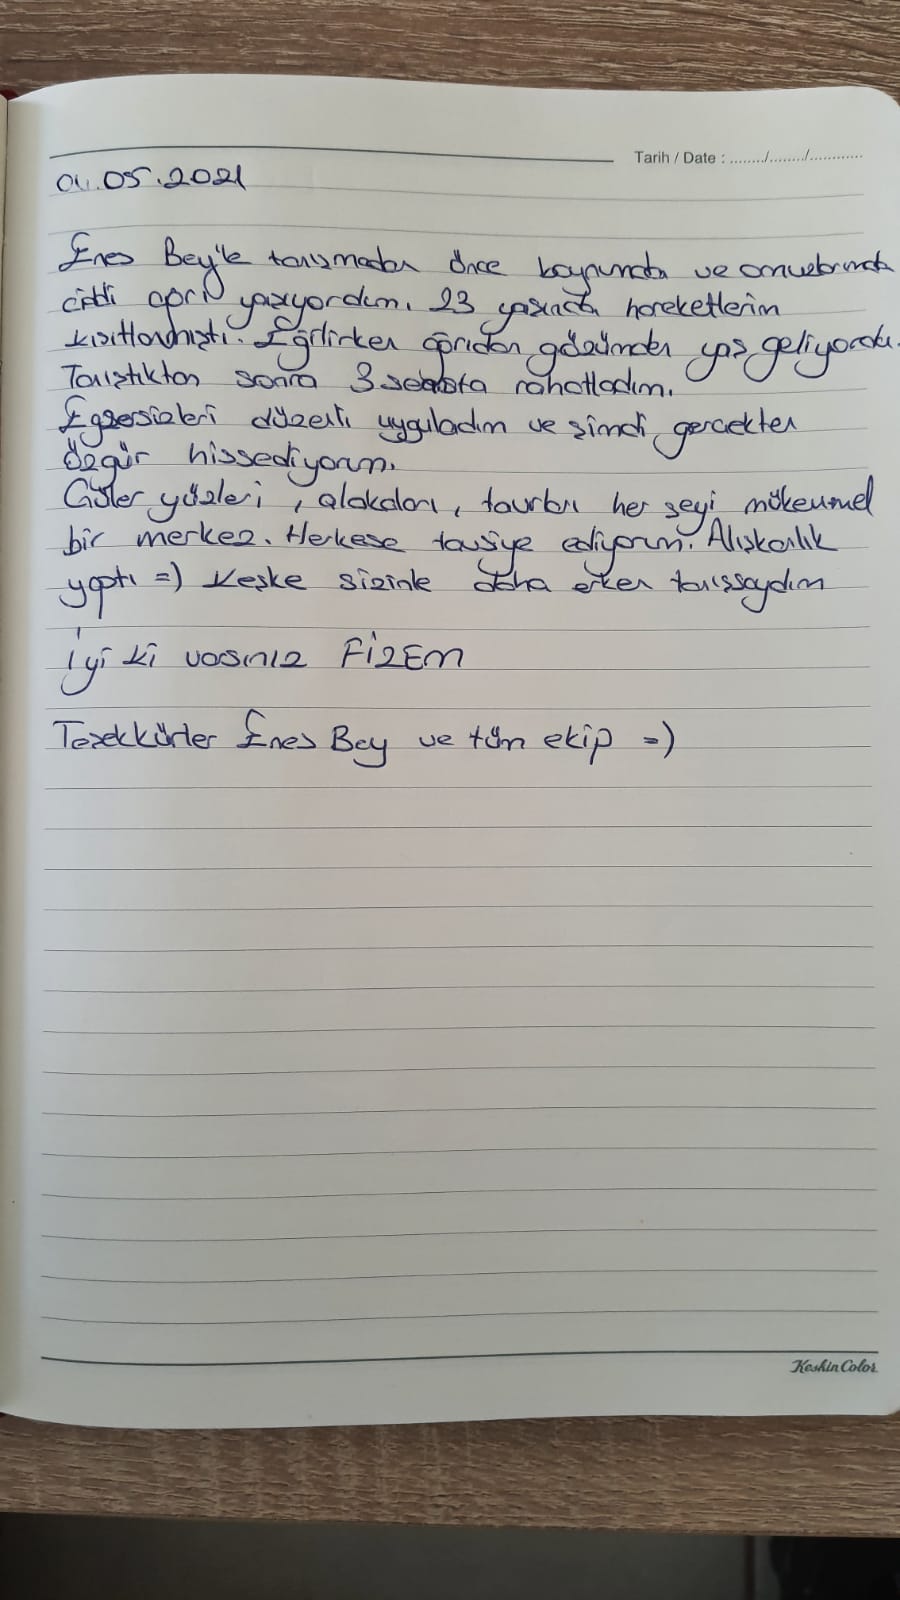 Tarih / Date : ......../......../............
04.05.2021
Enes Bey'le tanışmadan önce boynumda ve omuzlarımda
ciddi ağrı yaşıyordum. 23 yaşında hareketlerim
kısıtlanmıştı. Eğilirken ağrıdan gözümden yaş geliyordu.
Tanıştıktan sonra 3 seansta rahatladım.
Egzersizleri düzenli uyguladım ve şimdi gerçekten
özgür hissediyorum.
Güler yüzleri, alakaları, tavırları her şeyi mükemmel
bir merkez. Herkese tavsiye ediyorum. Alışkanlık
yaptı =) Keşke sizinle daha erken tanışsaydım
İyi ki varsınız FİZEM
Teşekkürler Enes Bey ve tüm ekip =)
Keskin Color